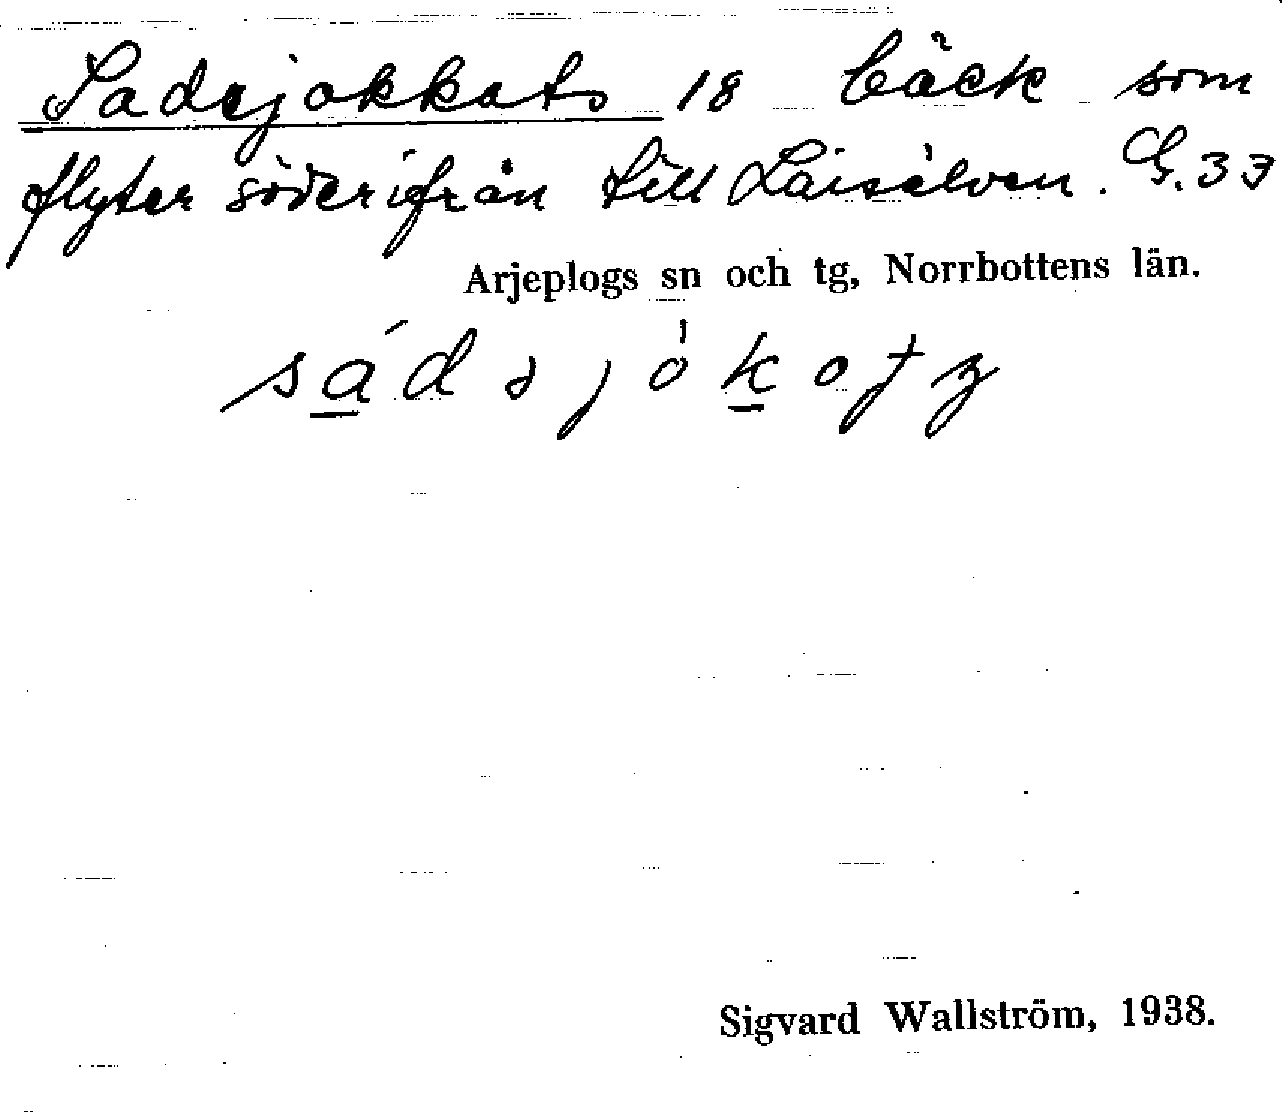 Sadejokkats 18 bäck som
flyter söderifrån till Laisälven. G. 33
Arjeplogs sn och tg, Norrbottens län.
Sigvard Wallström, 1938.